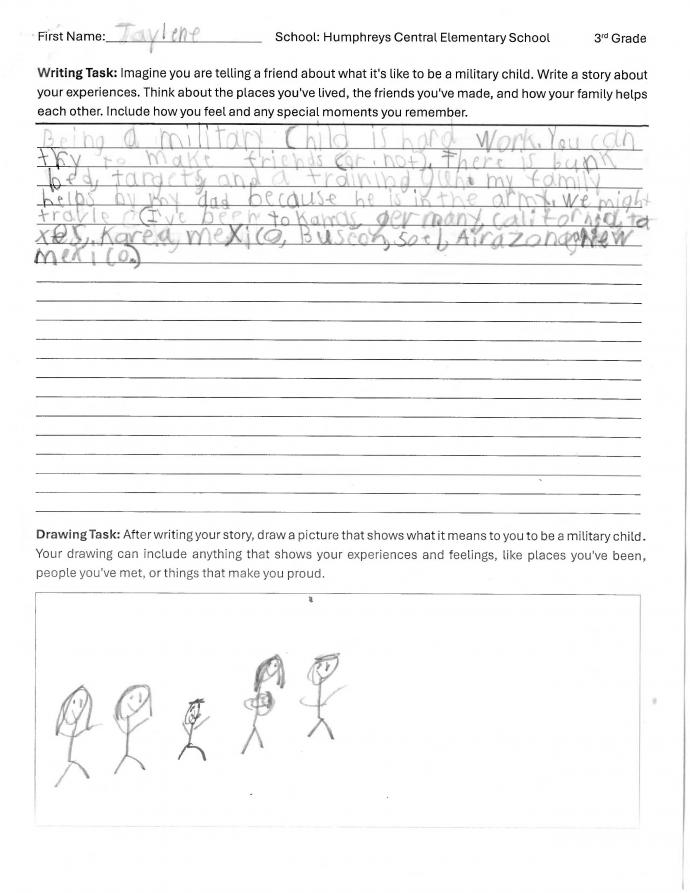 First Name: Jaylene School: Humphreys Central Elementary School 3rd Grade
Writing Task: Imagine you are telling a friend about what it's like to be a military child. Write a story about
your experiences. Think about the places you've lived, the friends you've made, and how your family helps
each other. Include how you feel and any special moments you remember.
Being a military Child is hard Work. You can
try to make friends (or, not), There is bunk
bed, targets and a training my family
helps by my dad because he is in the army. We might
travle. (I've been to Kansas, germany, california, ta
xes, Karea, mexico, Buscon, Soel, Airazona, New
mexico.)
Drawing Task: After writing your story, draw a picture that shows what it means to you to be a military child.
Your drawing can include anything that shows your experiences and feelings, like places you've been,
people you've met, or things that make you proud.